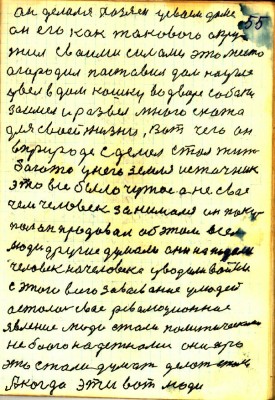 55
он делался хозяен усваем доме
он его как такового окру
жил сваими силами это место
агародил паставил дом научил
цвел в дом кошку во дворе собаки
заимел и развел много скота
для своей жизни, Вот чего он
в природе сделал стал жить
богато у него земля источник
это все было чужое а не свое
чем человек занимался он поку
пал он продовал об этом все
люди другие думали они
человек на человека уводили войны
с этого всего завоевание улюдей
свое революционное
явление люди стали политически
не богонадежными они про
это стали думать делать
А когда эти вот люди